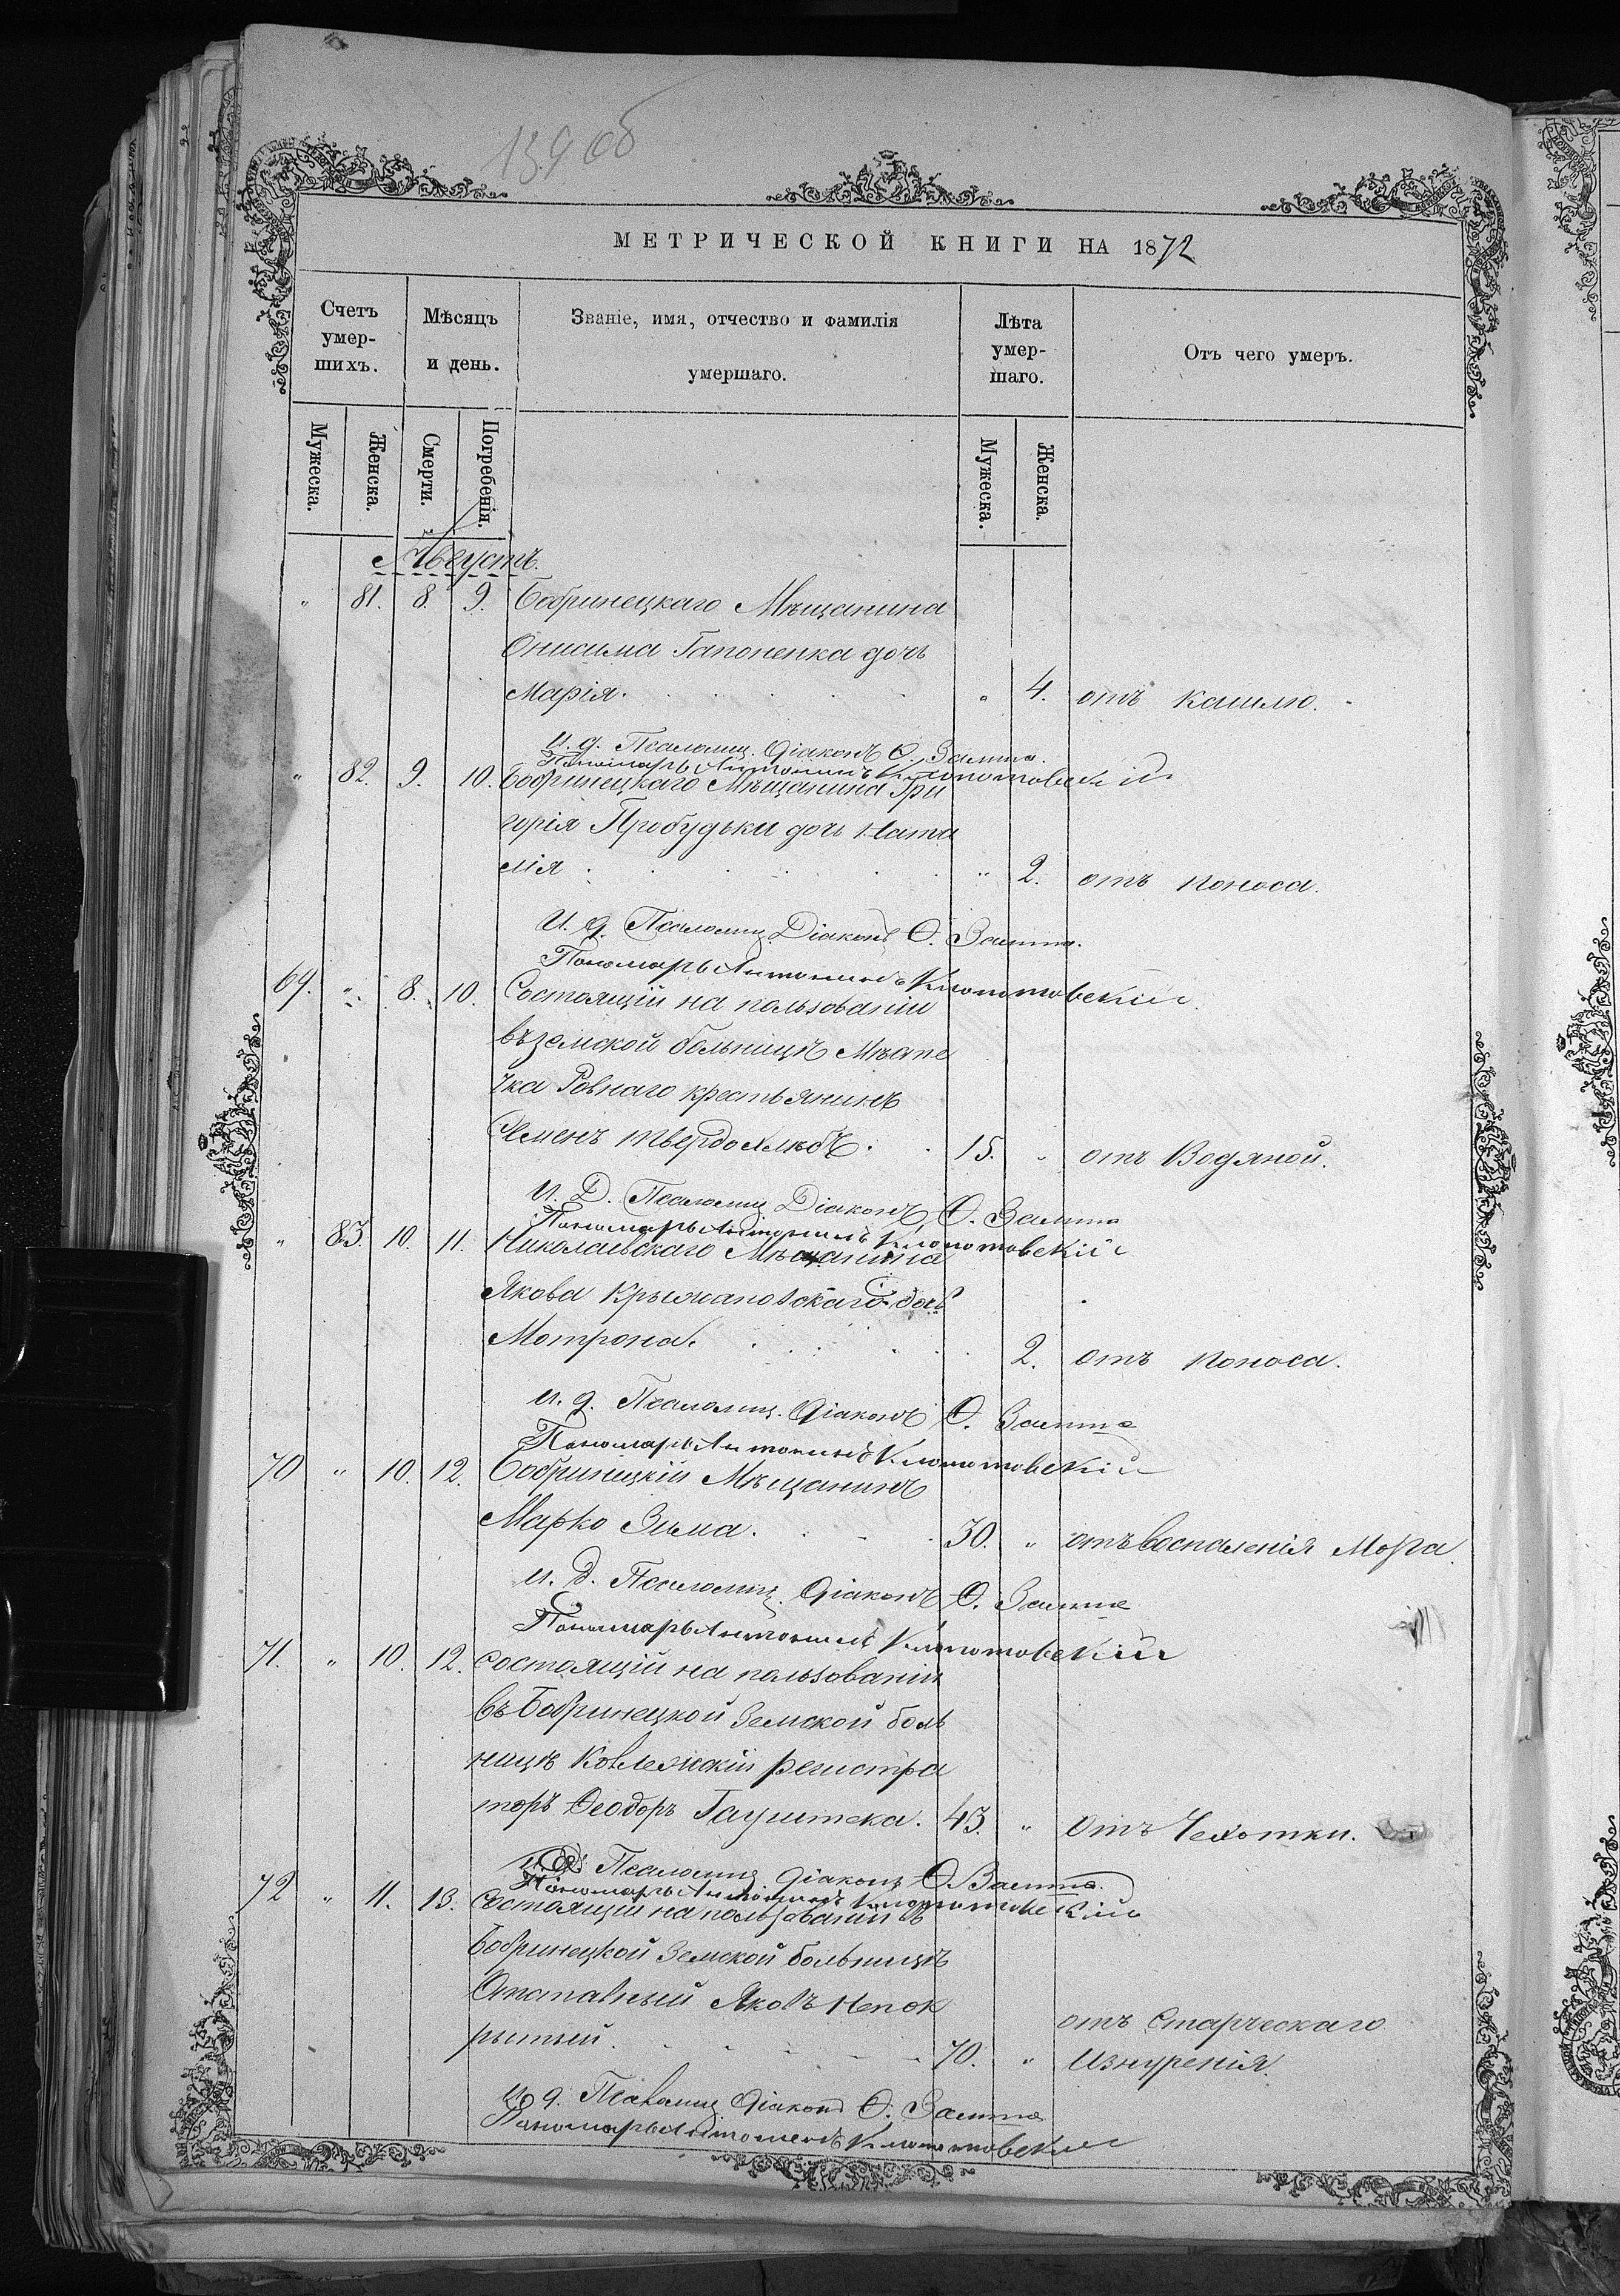 139 об
МЕТРИЧЕСКОЙ КНИГИ НА 1872
Счетъ умер-шихъ.
Мѣсяцъ и день.
Званіе, имя, отчество и фамилія умершаго.
Лѣта умер-шаго.
Отъ чего умеръ.
Мужеска. Женска. Смерти. Погребенія. Мужеска. Женска.
Августъ.
" 81. 8. 9. Бобринецкаго Мѣщанина
Онисима Гапоненка дочь
Марія. " 4. отъ кашлю.
И. д. Псаломщ. Діаконъ Ѳ.
Пономарь Антонинъ Клопотовскій
" 82. 9. 10. Бобринецкаго Мѣщанина Гри
горія Пробудьки дочь Ната
лія " 2. отъ поноса.
И. д. Псаломщ. Діаконъ Ѳ.
Пономарь Антонинъ Клопотовскій
69. " 8. 10. Состоящій на пользованіи
въ земской больницѣ Мѣсте
чка Ровнаго крестьянинъ
Семенъ твердохлѣбъ. 15. " отъ Водяной.
И. Д. Псаломщ. Діаконъ Ѳ.
Пономарь Антонинъ Клопотовскій
" 83. 10. 11. Николаевскаго Мѣщанина
Якова Крыжановскаго дочь
Мотрона. 2. отъ поноса.
И. д. Псаломщ. Діаконъ Ѳ.
Пономарь Антонинъ Клопотовскій
70 " 10. 12. Бобринецкій Мѣщанинъ
Марко Зима. 30. " отъ воспаленія Мозга.
И. д. Псаломщ. Діаконъ Ѳ.
Пономарь Антонинъ Клопотовскій
71. " 10. 12. состоящій на пользованіи
въ Бобринецкой Земской боль
ницѣ Коллежскій регистра
торъ Ѳеодоръ 43. " отъ Чехотки.
И. д. Псаломщ. Діаконъ Ѳ.
Пономарь Антонинъ Клопотовскій
72 " 11. 13. Состоящій на пользованіи въ
Бобринецкой Земской больницѣ
Отставный Яковъ Непок
рытый. 70. " отъ Старческаго
Изнуренія.
И. д. Псаломщ. Діаконъ Ѳ.
Пономарь Антонинъ Клопотовскій